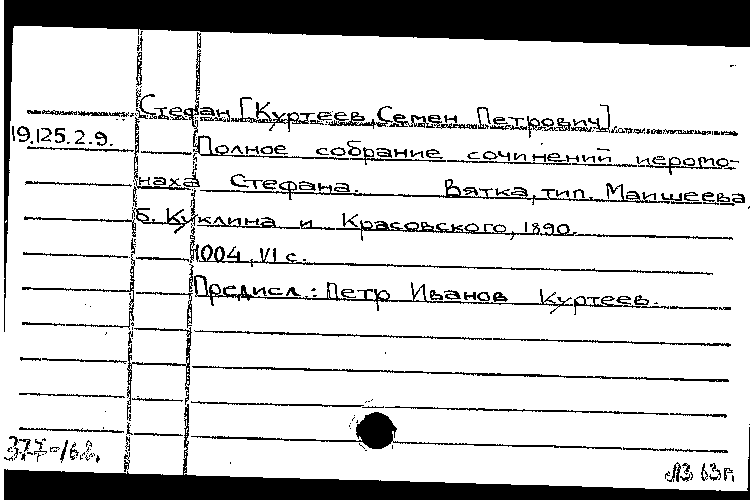 Стефан [Куртеев, Семен Петрович].
19.125.2.9.
Полное собрание сочинений иеромо-
наха Стефана. Вятка, тип. Маишеева,
б. Куклина и Красовского, 1890.
1004, VI с.
Предисл.: Петр Иванов Куртеев.
377-162.
ЛЗ 63г.